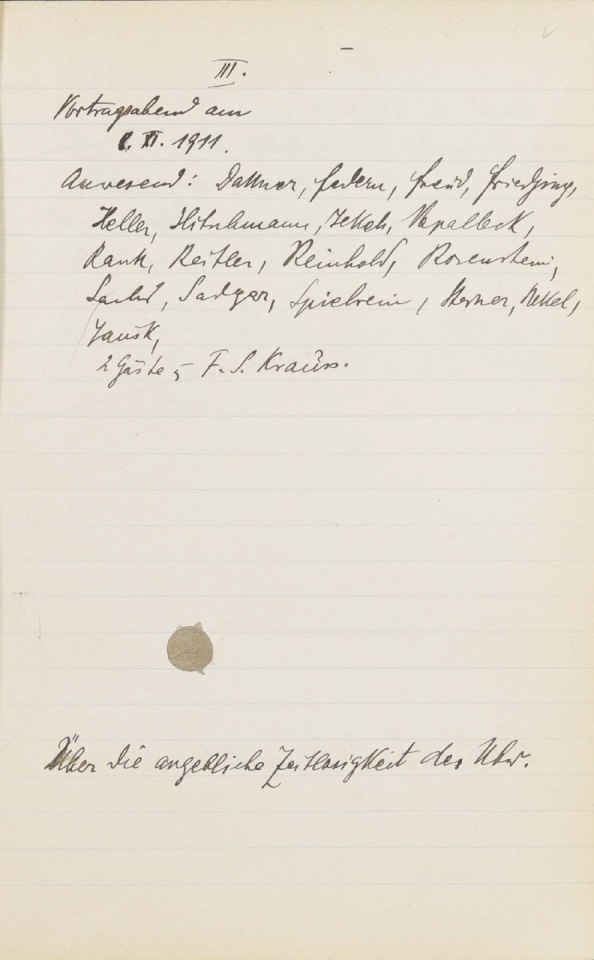 III.
Vortragsabend am
8. XI. 1911.
Anwesend: Dattner, Federn, Freud, Friedjung,
Heller, Hitschmann, Jekels, Nepalleck,
Rank, Reitler, Reinhold, Rosenstein,
Sachs, Sadger, Spielrein, Steiner, Stekel,
Tausk,
2 Gäste, F. S. Krauss.
Über die angebliche Zeitlosigkeit des Ubw.